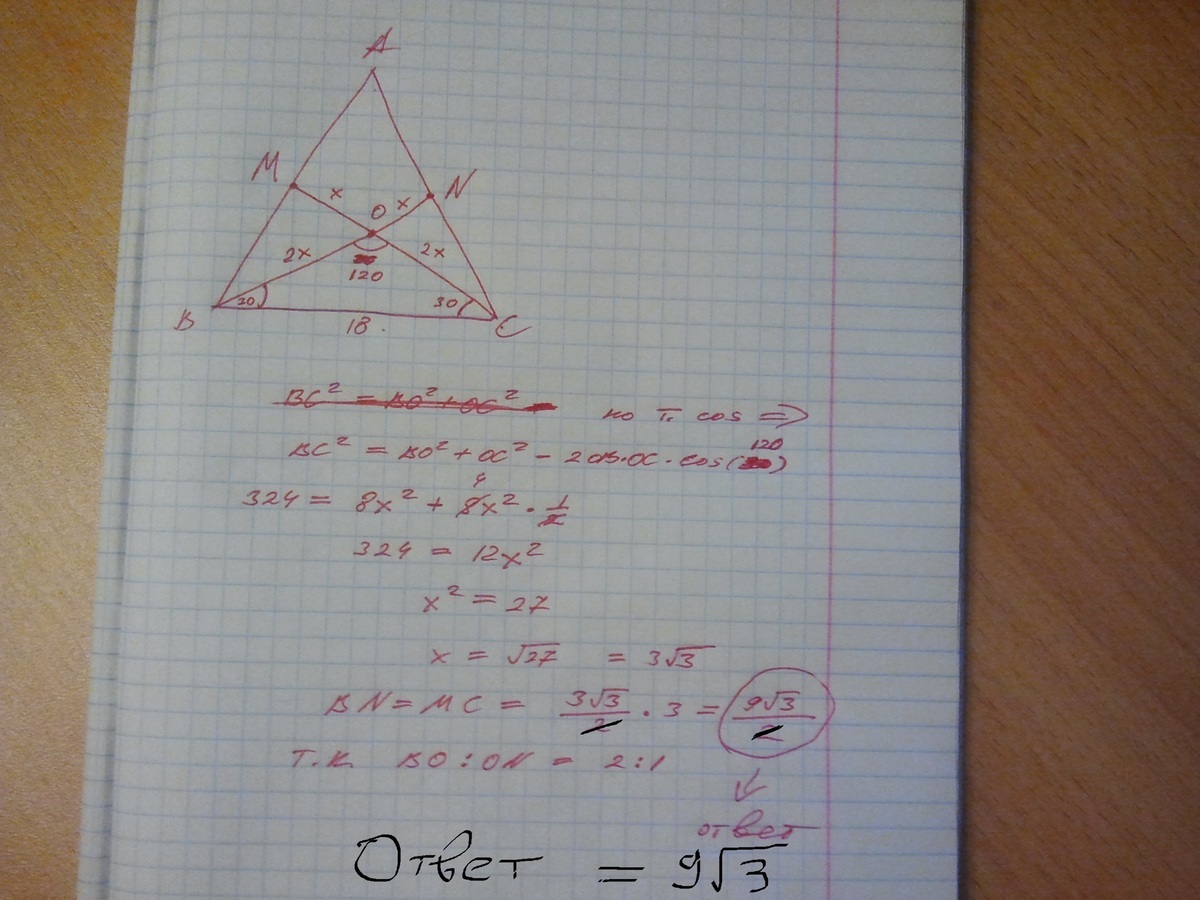 A
M
N
x
O
x
2x
2x
120
30
30
B
18
C
BC² = BO² + OC² -
по т. cos ⇒
BC² = BO² + OC² - 2OB·OC·cos(120)
324 = 8x² + 8x² · 1/2
4
324 = 12x²
x² = 27
x = √27 = 3√3
BN = MC = 3√3/2 · 3 = 9√3/2
Т.к. BO : ON = 2:1
ответ
Ответ = 9√3